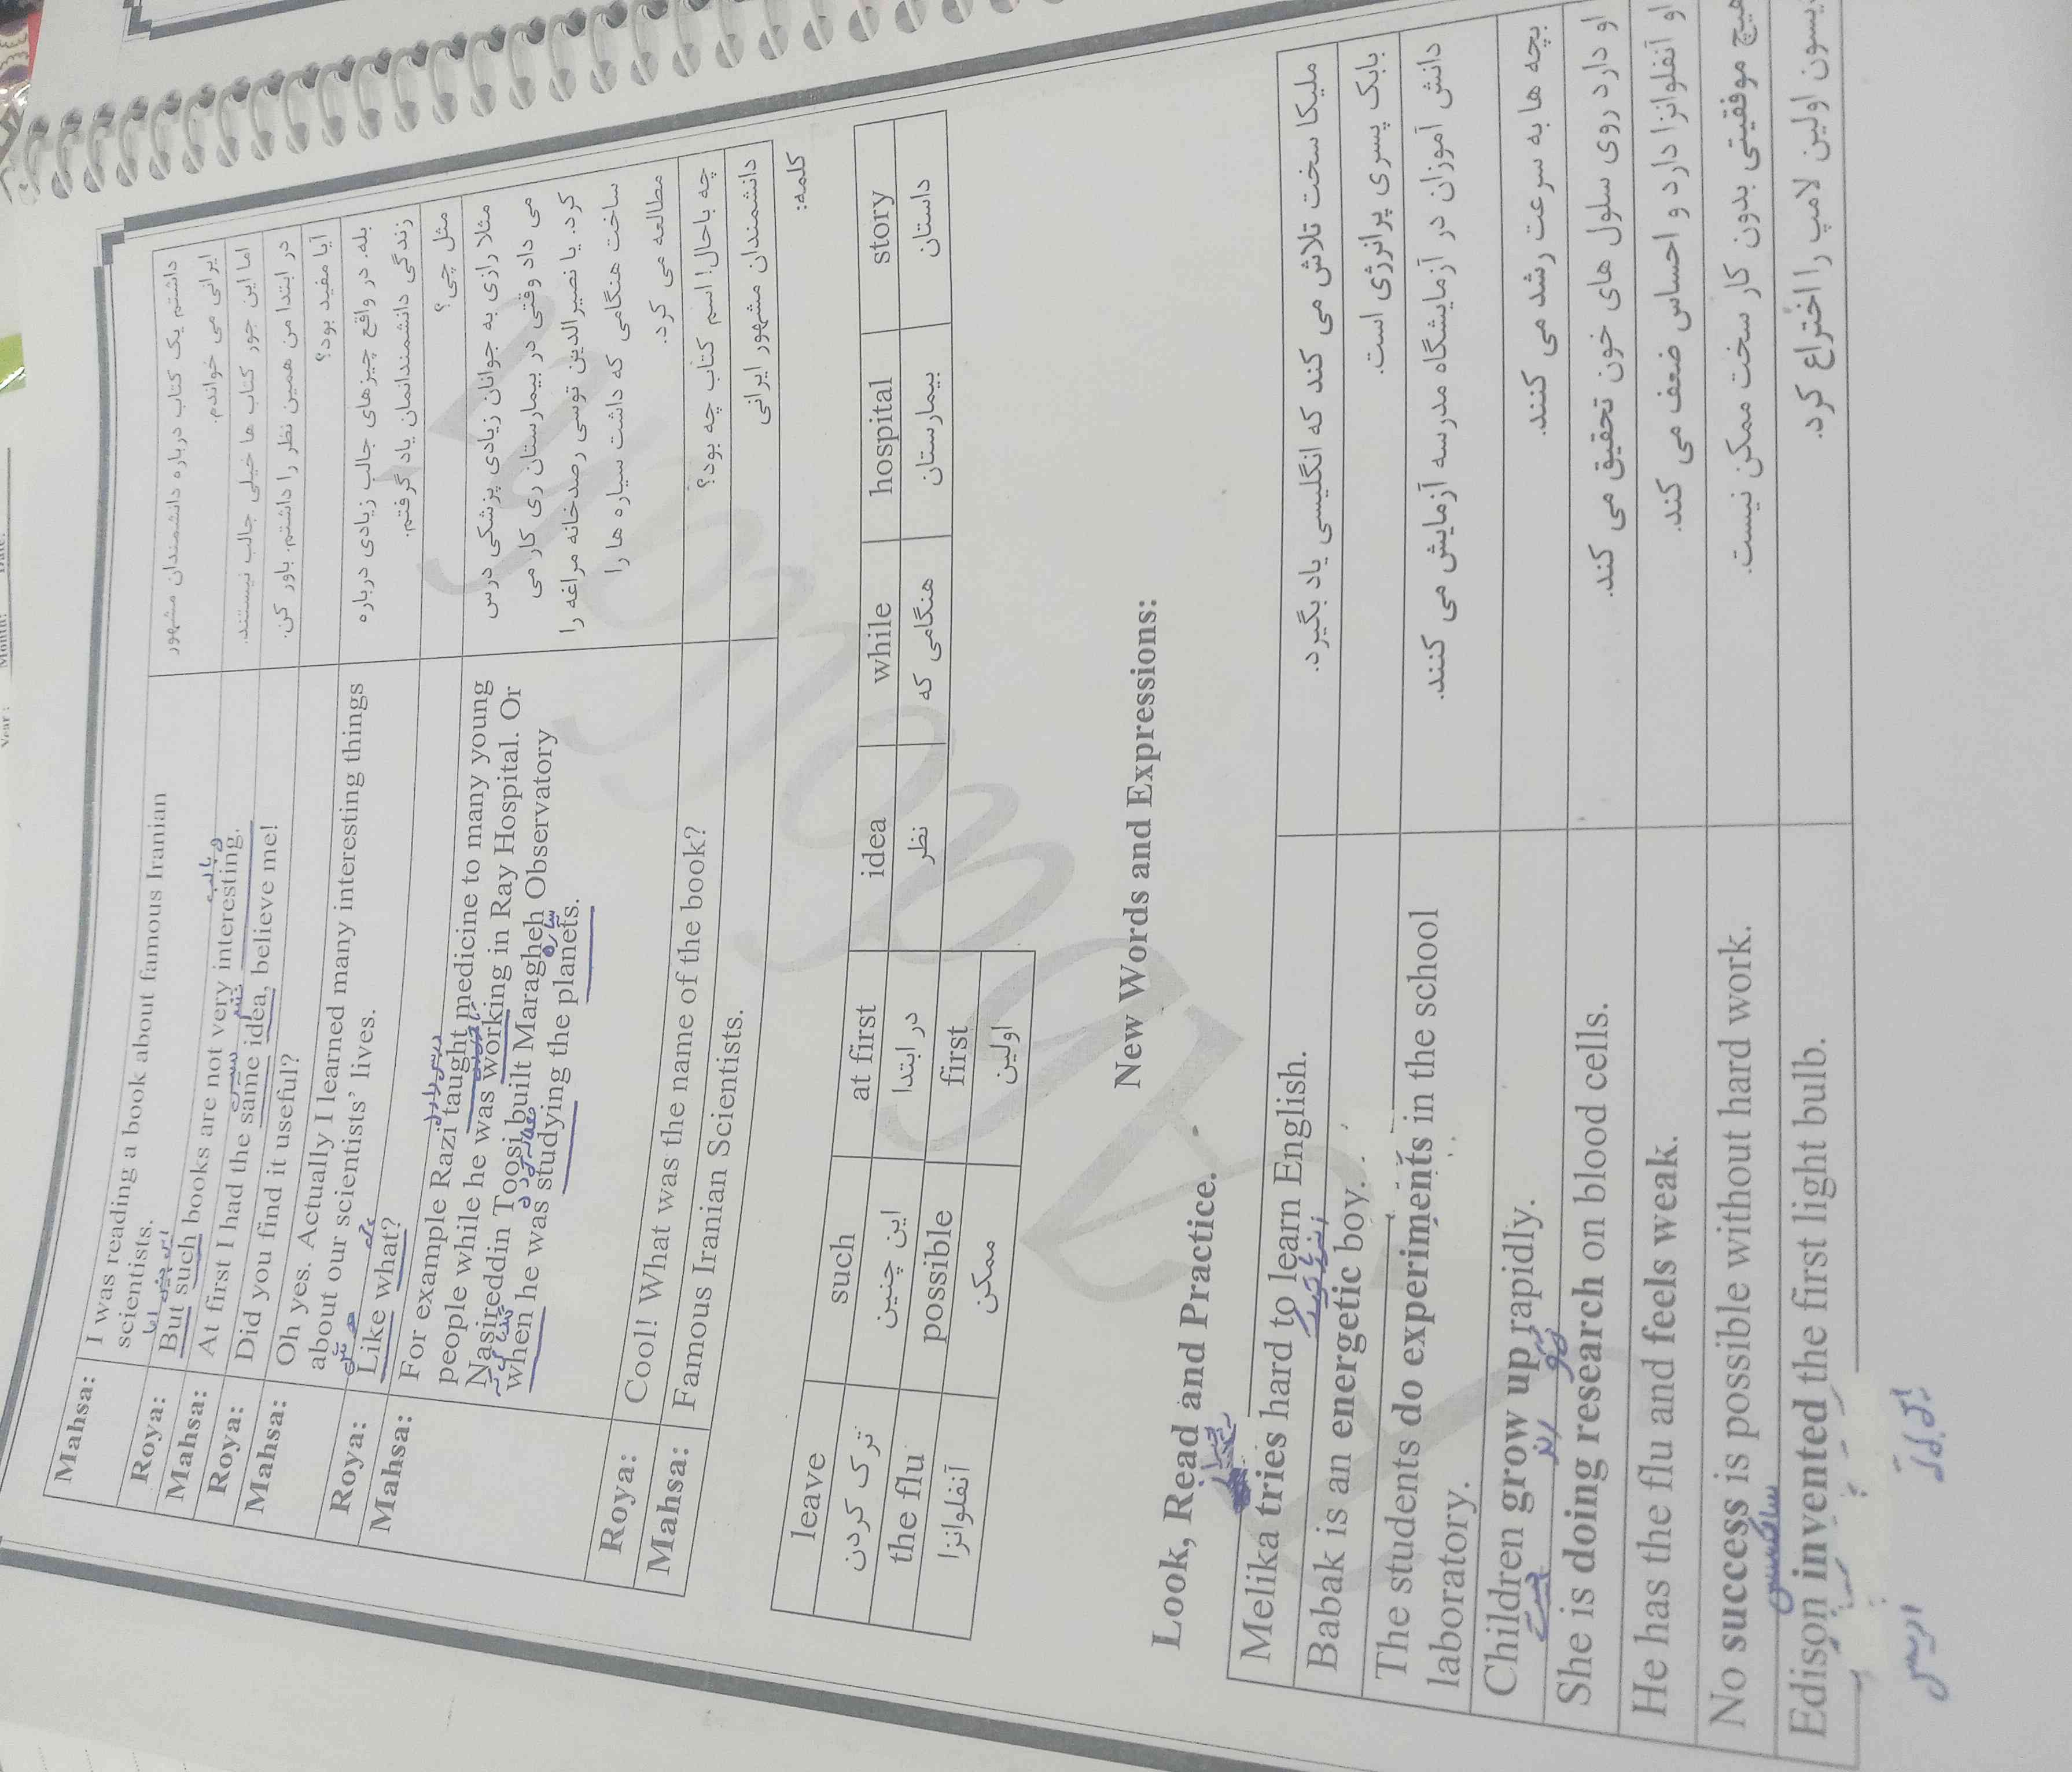 Mahsa: I was reading a book about famous Iranian
scientists.
داشتم یک کتاب درباره دانشمندان مشهور
ایرانی می خواندم.
Roya: But such books are not very interesting.
اما این جور کتاب ها خیلی جالب نیستند.
Mahsa: At first I had the same idea, believe me!
در ابتدا من همین نظر را داشتم. باور کن.
Roya: Did you find it useful?
آیا مفید بود؟
Mahsa: Oh yes. Actually I learned many interesting things
about our scientists' lives.
بله. در واقع چیزهای جالب زیادی درباره
زندگی دانشمندانمان یاد گرفتم.
Roya: Like what?
مثل چی؟
Mahsa: For example Razi taught medicine to many young
people while he was working in Ray Hospital. Or
Nasireddin Toosi built Maragheh Observatory
when he was studying the planets.
مثلا رازی به جوانان زیادی پزشکی درس
می داد وقتی در بیمارستان ری کار می
کرد. یا نصیرالدین توسی رصدخانه مراغه را
ساخت هنگامی که داشت سیاره ها را
مطالعه می کرد.
Roya: Cool! What was the name of the book?
چه باحال! اسم کتاب چه بود؟
Mahsa: Famous Iranian Scientists.
دانشمندان مشهور ایرانی
کلمه:
leave such at first idea while hospital story
ترک کردن این چنین در ابتدا نظر هنگامی که بیمارستان داستان
the flu possible first
آنفلوانزا ممکن اولین
New Words and Expressions:
Look, Read and Practice.
Melika tries hard to learn English.
ملیکا سخت تلاش می کند که انگلیسی یاد بگیرد.
Babak is an energetic boy.
بابک پسری پرانرژی است.
The students do experiments in the school
laboratory.
دانش آموزان در آزمایشگاه مدرسه آزمایش می کنند.
Children grow up rapidly.
بچه ها به سرعت رشد می کنند.
She is doing research on blood cells.
او دارد روی سلول های خون تحقیق می کند.
He has the flu and feels weak.
او آنفلوانزا دارد و احساس ضعف می کند.
No success is possible without hard work.
هیچ موفقیتی بدون کار سخت ممکن نیست.
ساکسس
Edison invented the first light bulb.
یسون اولین لامپ را اختراع کرد.